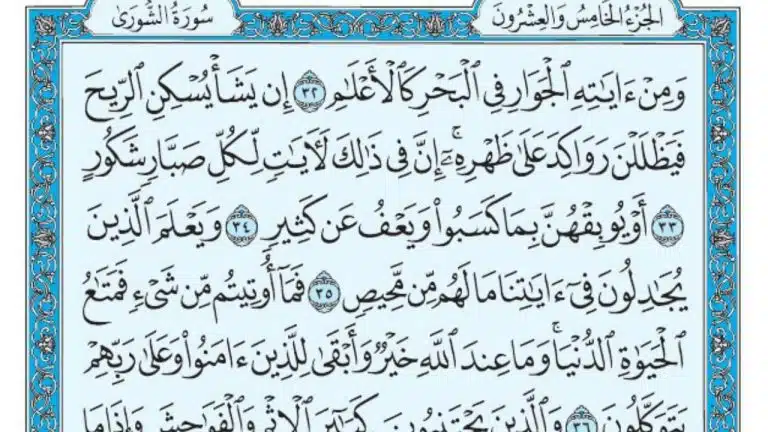 الجُزْءُ الخَامِسُ وَالعِشْرُونَ
سُورَةُ الشُّورَىٰ
وَمِنْ ءَايَٰتِهِ ٱلْجَوَارِ فِي ٱلْبَحْرِ كَٱلْأَعْلَٰمِ ٣٢ إِن يَشَأْ يُسْكِنِ ٱلرِّيحَ
فَيَظْلَلْنَ رَوَاكِدَ عَلَىٰ ظَهْرِهِۦٓ ۚ إِنَّ فِي ذَٰلِكَ لَأٓيَٰتٍ لِّكُلِّ صَبَّارٍ شَكُورٍ
٣٣ أَوْ يُوبِقْهُنَّ بِمَا كَسَبُوا۟ وَيَعْفُ عَن كَثِيرٍ ٣٤ وَيَعْلَمَ ٱلَّذِينَ
يُجَٰدِلُونَ فِيٓ ءَايَٰتِنَا مَا لَهُم مِّن مَّحِيصٍ ٣٥ فَمَآ أُوتِيتُم مِّن شَيْءٍ فَمَتَٰعُ
ٱلْحَيَوٰةِ ٱلدُّنْيَا ۚ وَمَا عِندَ ٱللَّهِ خَيْرٌ وَأَبْقَىٰ لِلَّذِينَ ءَامَنُوا۟ وَعَلَىٰ رَبِّهِمْ
يَتَوَكَّلُونَ ٣٦ وَٱلَّذِينَ يَجْتَنِبُونَ كَبَٰٓئِرَ ٱلْإِثْمِ وَٱلْفَوَٰحِشَ وَإِذَا مَا